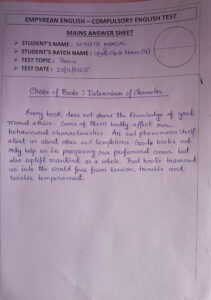 EMPYREAN ENGLISH – COMPULSORY ENGLISH TEST
MAINS ANSWER SHEET
➤ STUDENT'S NAME : MONDAL
➤ STUDENT'S BATCH NAME :
➤ TEST TOPIC : Precis
➤ TEST DATE :
Choice of Books : Determiner of Character.
Every book does not share the knowledge of good
moral ethics. Some of them badly affect our
behavioural characteristics. An evil phenomena itself
alert us about other evil temptations. Goods books not
only help us in preparing our professional career but
also uplift mankind as a whole. Best books transcend
us into the world free from tension, trouble and
temperament.